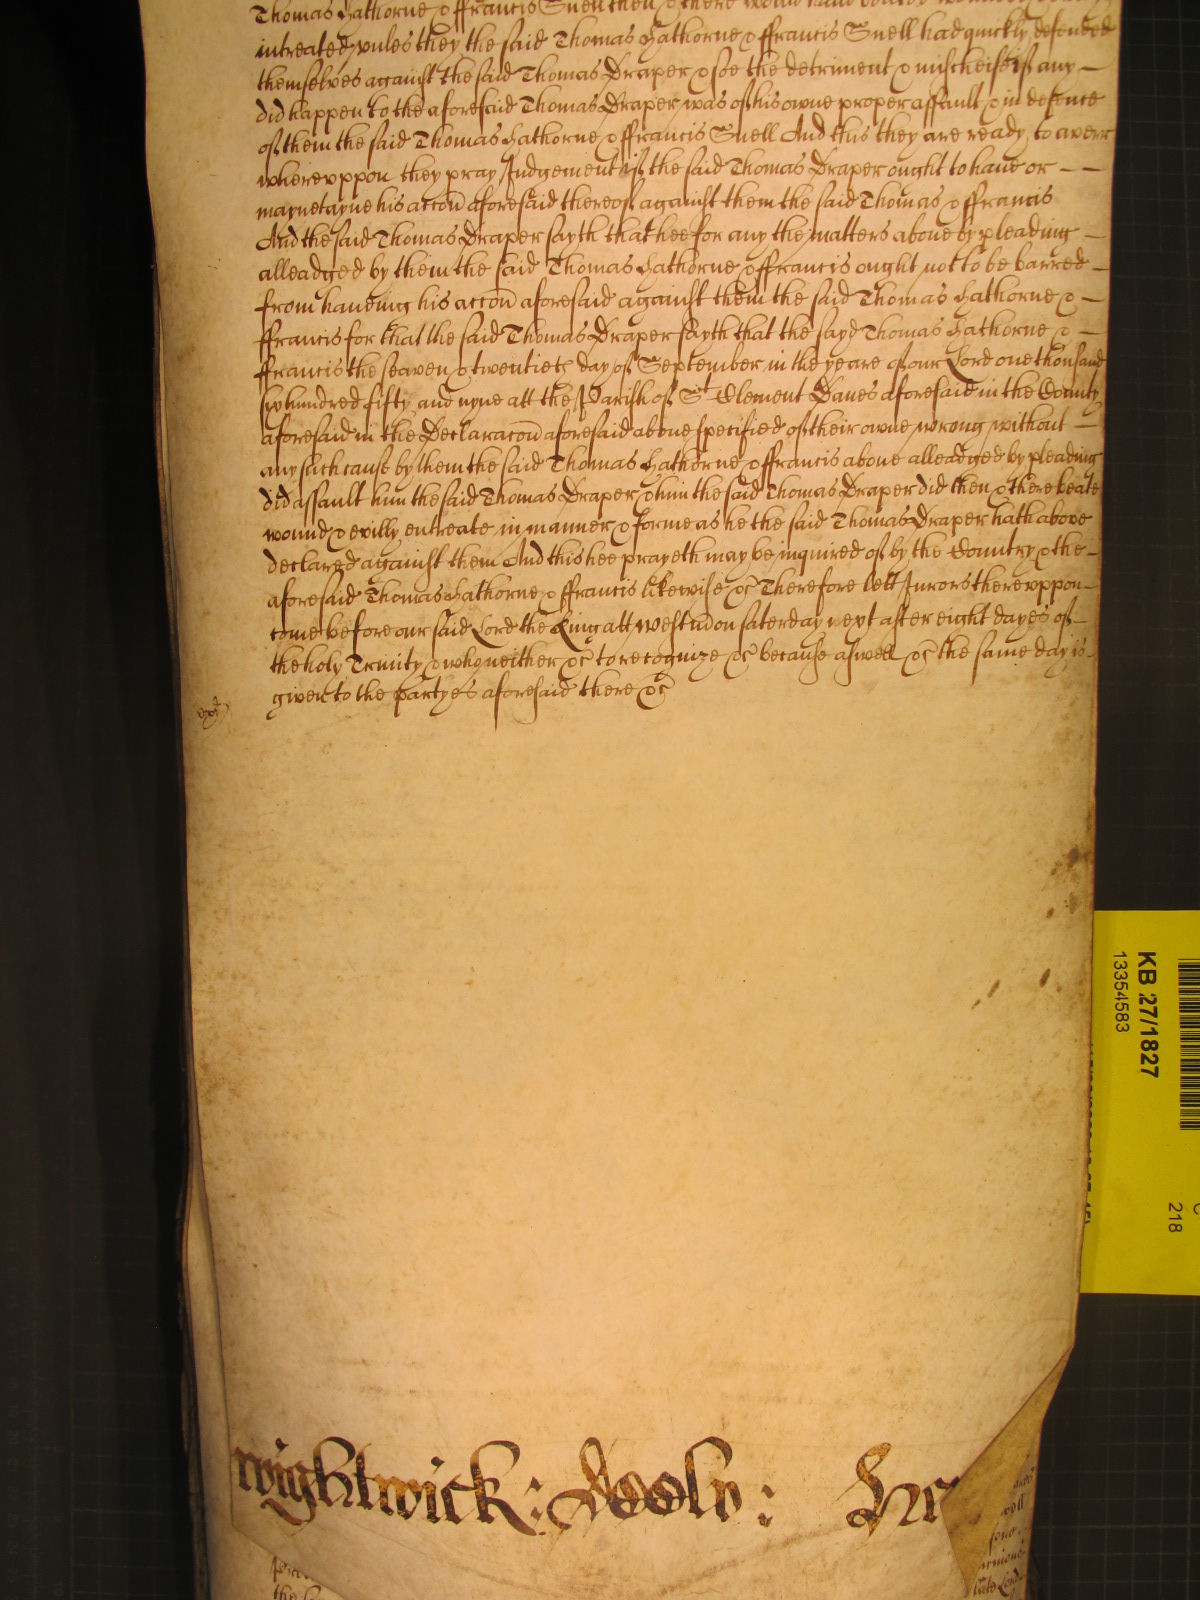 Thomas Hathorne & ffrancis Snell then & there would haue
intreated vnles they the said Thomas Hathorne & ffrancis Snell had quickly defended
themselves against the said Thomas Draper & soe the detriment & mischeife if any
did happen to the aforesaid Thomas Draper was of his owne proper assault & in defence
of them the said Thomas Hathorne & ffrancis Snell And this they are ready to averr
wherevppon they pray Judgement if the said Thomas Draper ought to haue or
maynetayne his accon aforesaid thereof against them the said Thomas & ffrancis
And the said Thomas Draper sayth that hee for any the matters aboue by pleading
alleadged by them the said Thomas Hathorne & ffrancis ought not to be barred
from haueing his accon aforesaid against them the said Thomas Hathorne &
ffrancis for that he said Thomas Draper sayth that the sayd Thomas Hathorne &
ffrancis the seaven & twentieth day of September in the yeare of our Lord one thousand
six hundred fifty and nyne att the Parish of St Clement Danes aforesaid in the County
aforesaid in the Declaracon aforesaid aboue specified of their owne wrong without
any such cause by them the said Thomas Hathorne & ffrancis aboue alleadged by pleading
did assault him the said Thomas Draper & him the said Thomas Draper did then & there beate
wound & evilly entreate in manner & forme as he the said Thomas Draper hath above
declared against them And this hee prayeth may be inquired of by the Country & the
aforesaid Thomas Hathorne & ffrancis likewise &c Therefore lett Jurors therevppon
come before our said Lord the King att Westm̄ on saterday next after eight dayes of
the holy Trinity & who neither &c to recognize &c because aswell &c the same day is
given to the partyes aforesaid there &c
wightwick: Dooly:
KB 27/1827
13354583
218